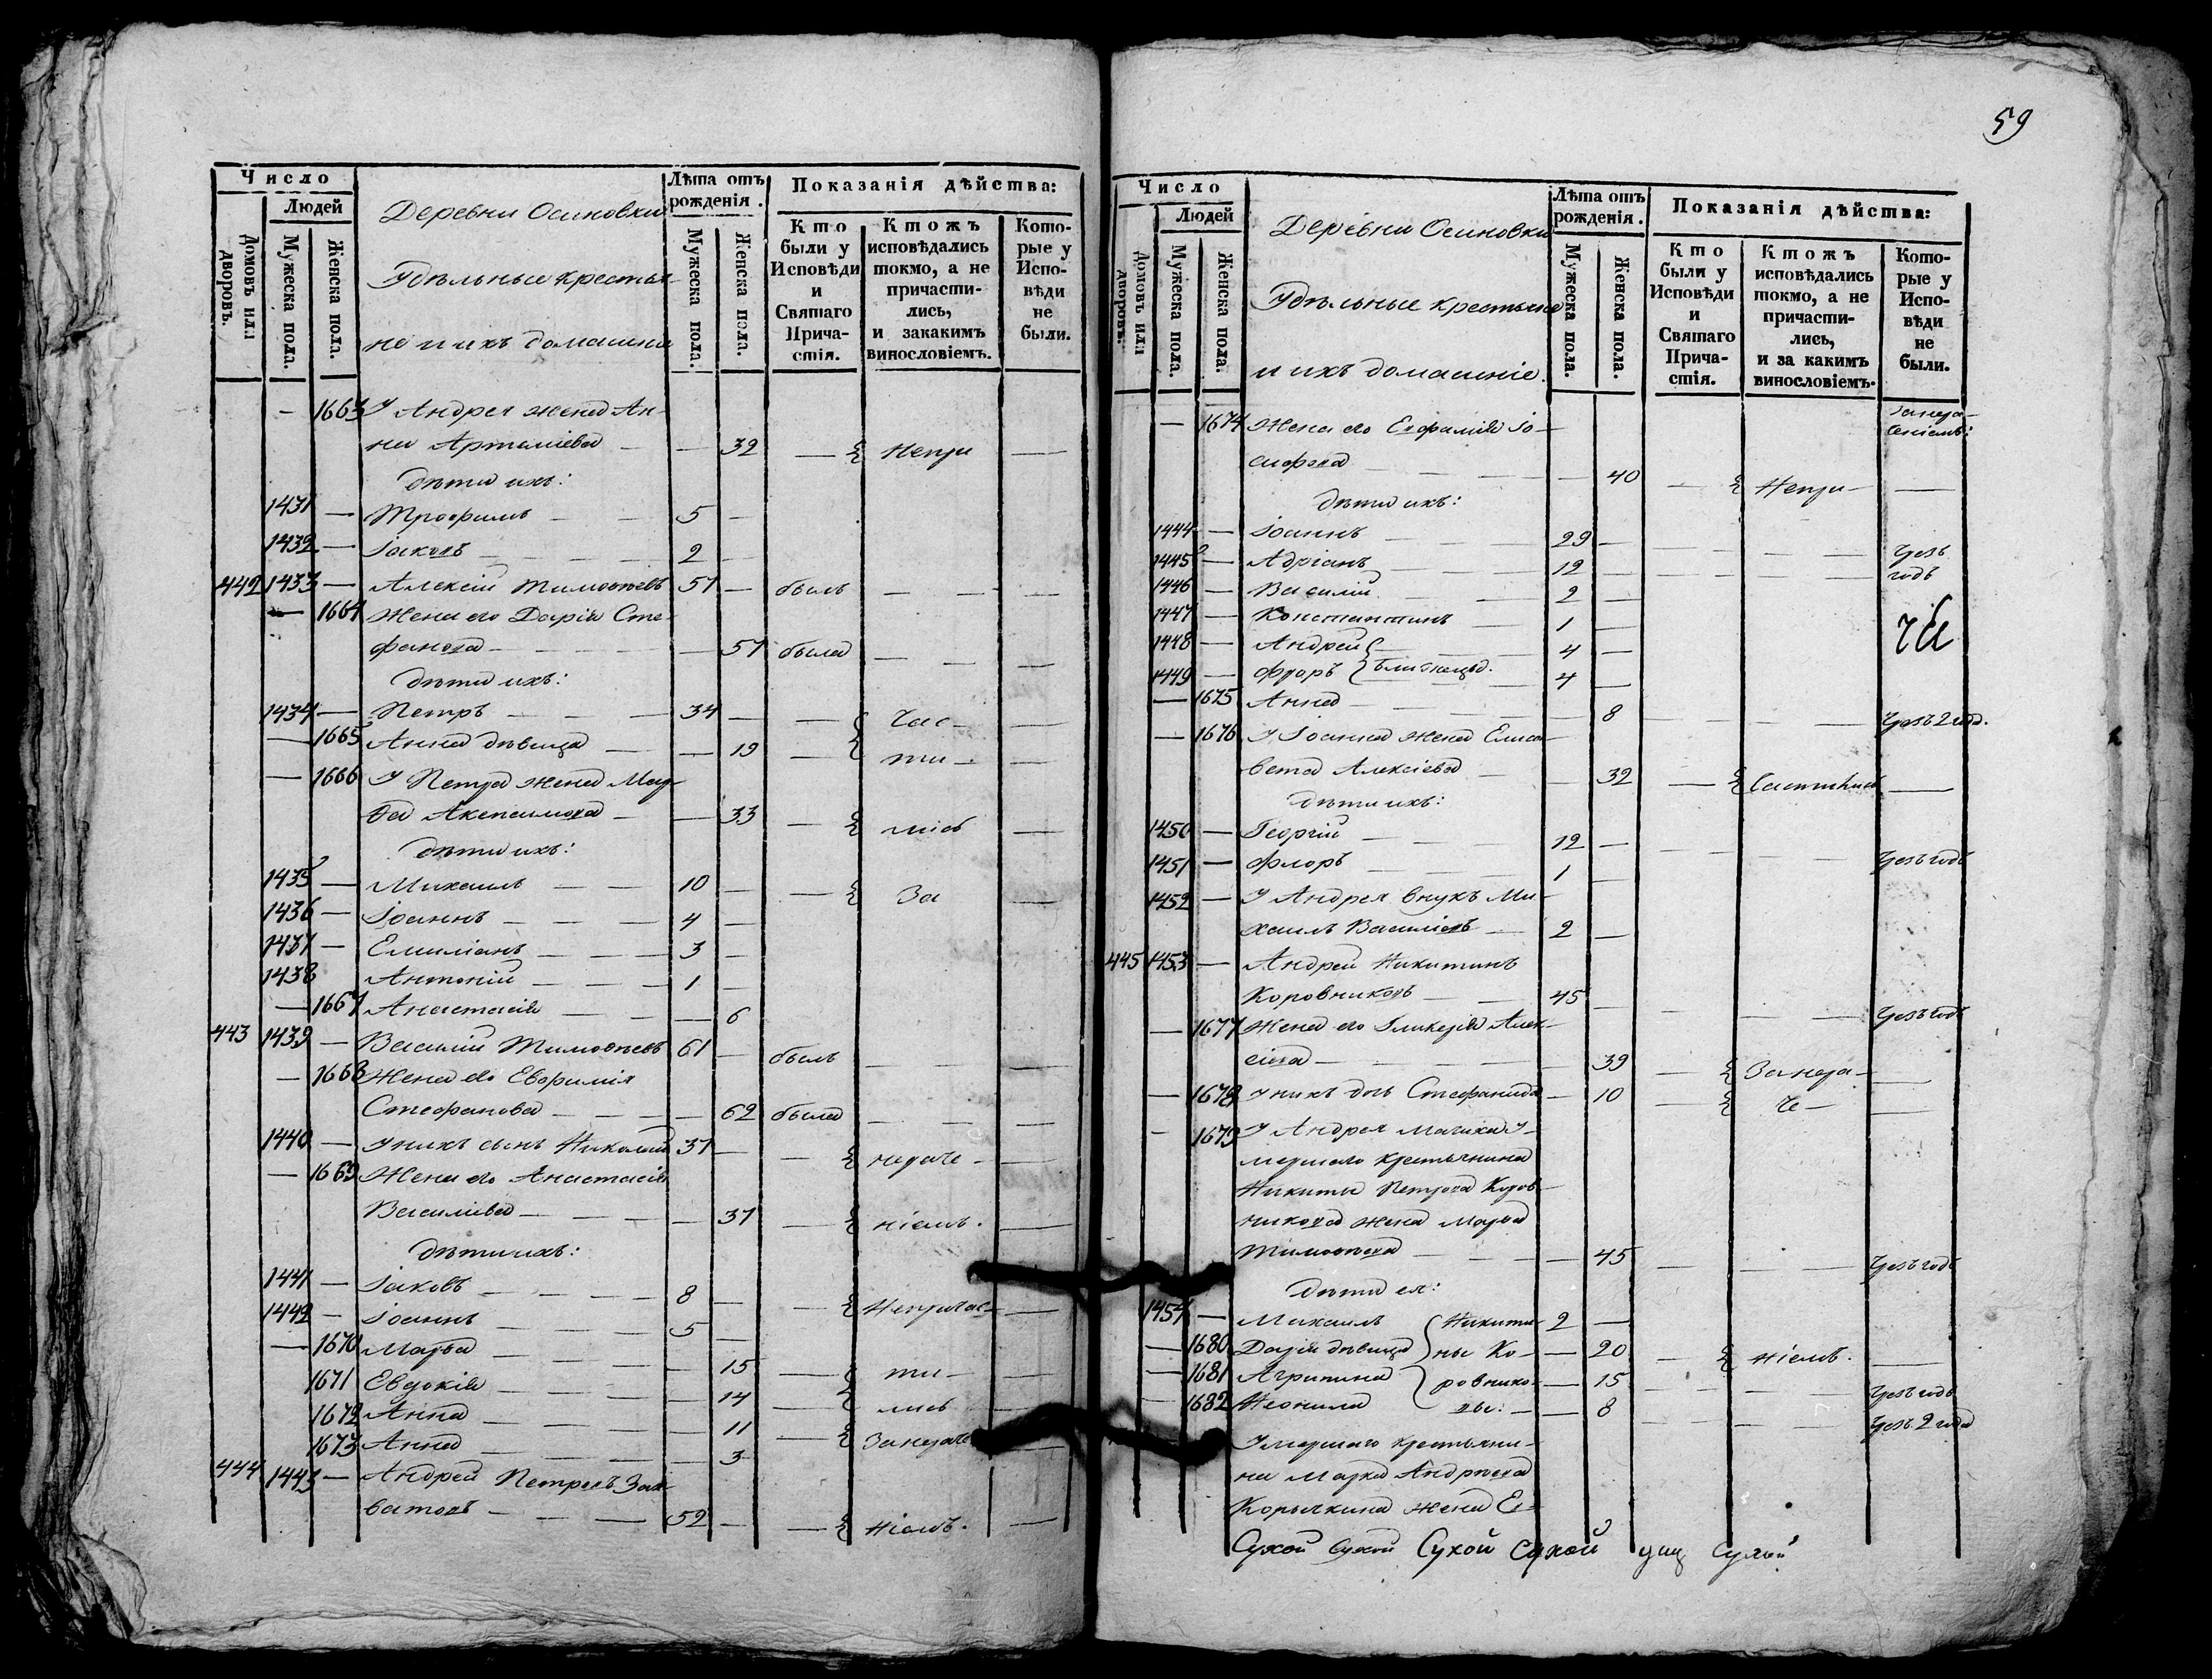 Число
Людей
Домовъ или дворовъ.
Мужеска пола.
Женска пола.
Деревни Осиновки
Удѣльные крестья-
не и ихъ домашни
Лѣта отъ рожденія.
Мужеска пола.
Женска пола.
Показанія дѣйства:
Кто были у Исповѣди и Святаго Причастія.
Ктожъ исповѣдались токмо, а не причастились, и закакимъ винословіемъ.
Которые у Исповѣди не были.
— 1663 У Андрея жена Ан-
на Артемiева — — 32 — Непри —
дѣти ихъ:
1431 — Трофимъ — — 5 —
1432 — Iаковъ — — 2 —
442 1433 — Алексiй Тимоѳеевъ 51 — былъ — — —
— 1664 Жена его Дарiя Сте-
фанова — — 51 была — — —
дѣти ихъ:
1434 — Петръ — — 34 — — Час- —
— 1665 Анна дѣвица — — 19 — ти- —
— 1666 У Петра жена Мар-
ѳа Акепсимова — — 33 — лись —
дѣти ихъ:
1435 — Михаилъ — — 10 — — За —
1436 — Iоаннъ — — 4 —
1437 — Емилiанъ — — 3 —
1438 Антонiй — — 1 —
— 1667 Анастасiя — — 6
443 1439 — Василiй Тимоѳеевъ 61 — былъ — — —
— 1668 Жена его Евфимiя
Стефанова — — 62 была — — —
1440 — У нихъ сынъ Николай 37 — — нераче- —
— 1669 Жена его Анастасiя
Василiева — — 37 — нiемъ. —
дѣти ихъ:
1441 — Iаковъ — — 8 — — Непричас- —
1442 — Iоаннъ — — 5 —
— 1670 Марѳа — — 15 — ти —
1671 Евдокiя — — 14 — лись
1672 Анна — — 11 — Занераче
1673 Анна — — 3
444 1443 — Андрей Петровъ Зах-
ватовъ — — 52 — — нiемъ. —
59
Число
Людей
Домовъ или дворовъ.
Мужеска пола.
Женска пола.
Деревни Осиновки
Удѣльные крестьяне
и ихъ домашнiе.
Лѣта отъ рожденія.
Мужеска пола.
Женска пола.
Показанія дѣйства:
Кто были у Исповѣди и Святаго Причастія.
Ктожъ исповѣдались токмо, а не причастились, и за какимъ винословіемъ.
Которые у Исповѣди не были.
— 1674 Жена его Евфимiя Iо-
сифова — — 40 — Непри- —
дѣти ихъ:
1444 — Iоаннъ — — 29 — — — Чрезъ
1445 — Адрiанъ — — 12 — — — годъ
1446 — Василiй — — 2 —
1447 — Константинъ — 1 —
1448 — Андрей — 4 —
1449 — Флоръ близнецы. — 4 —
— 1675 Анна — — 8 — — Чрезъ 2 года.
— 1676 У Iоанна жена Елиса-
вета Алексiева — — 32 — Састились —
дѣти ихъ:
1450 — Георгiй — — 12 — — — Чрезъ годъ
1451 — Флоръ — — 1 —
1452 — У Андрея внукъ Ми-
хаилъ Василiевъ — 2 —
445 1453 — Андрей Никитинъ
Коровниковъ — — 45 — — — Чрезъ годъ
— 1677 Жена его Гликерiя Алек-
сiева — — 39 — Занера- —
— 1678 У нихъ дочь Стефанида — 10 — че- —
— 1679 У Андрея мачиха у-
мершаго крестьянина
Никиты Петрова Коров-
никова жена Марѳа
Тимоѳеева — — 45 — — Чрезъ годъ
дѣти ея:
1454 — Михаилъ Никити- 2 —
— 1680 Дарiя дѣвица ны Ко- — 20 — нiемъ. —
— 1681 Агрипина ровнико- — 15 — — Чрезъ годъ
— 1682 Неонила вы: — 8 — — Чрезъ 2 года
Умершаго крестьяни-
на Марка Андрѣева
Корычкина жена Ев-
Сухой Сухой Сухой Сухой Сухой